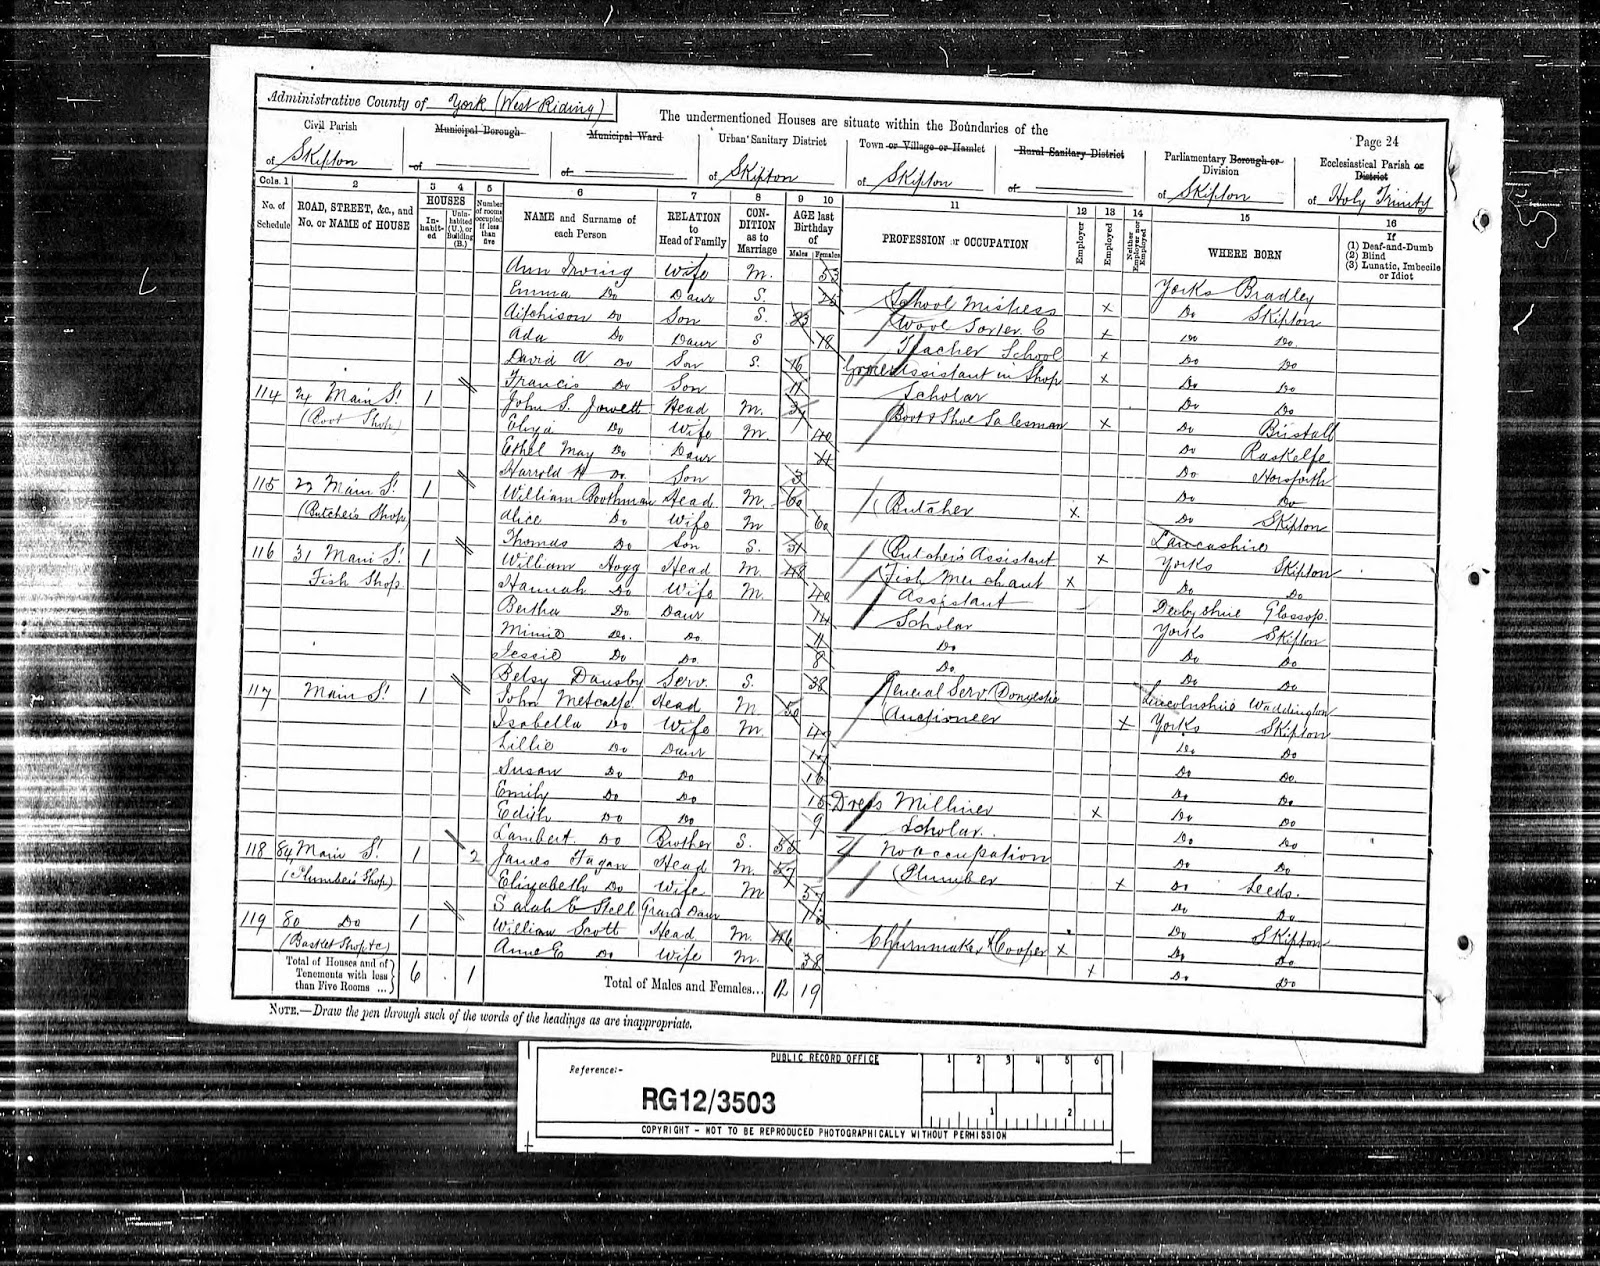 Administrative County of York (West Riding)
The undermentioned Houses are situate within the Boundaries of the
Page 24
Civil Parish
of Skipton
Municipal Borough
of
Municipal Ward
of
Urban Sanitary District
of Skipton
Town or Village or Hamlet
of Skipton
Rural Sanitary District
of
Parliamentary Borough or Division
of Skipton
Ecclesiastical Parish or District
of Holy Trinity
Cols. 1 2 3 4 5 6 7 8 9 10 11 12 13 14 15 16
No. of Schedule
ROAD, STREET, &c., and No. or NAME of HOUSE
HOUSES
In-habit-ed
Unin-habited (U.), or Building (B.)
Number of rooms occupied if less than five
NAME and Surname of each Person
RELATION to Head of Family
CON-DITION as to Marriage
AGE last Birthday of
Males Females
PROFESSION or OCCUPATION
Employer
Employed
Neither Employer nor Employed
WHERE BORN
If
(1) Deaf-and-Dumb
(2) Blind
(3) Lunatic, Imbecile or Idiot
Ann Irving Wife M. 53 Yorks Bradley
Emma Do Daur S. School Mistress x Do Skipton
Aitchison Do Son S. 23 Wool Sorter C x Do Do
Ada Do Daur S 18 Teacher School x Do Do
David A Do Son S. 16 Grocer Assistant in Shop x Do Do
Francis Do Son 11 Scholar Do Do
114 24 Main St 1 John S. Jowett Head M. Boot & Shoe Salesman x Do Birstall
(Boot Shop) Eliza Do Wife M. 40 Do Raskelfe
Ethel May Do Daur Do Horsforth
Harrold H Do Son 3 Do Do
115 1 William Boothman Head M. 60 Butcher x Do Skipton
(Butcher's Shop) Alice Do Wife M 60 Lancashire
Thomas Do Son S. 31 Butcher's Assistant x Yorks Skipton
116 31 Main St 1 William Hogg Head M. 48 Fish Merchant x Do Do
Fish Shop Hannah Do Wife M. 40 Assistant Derbyshire Glossop
Bertha Do Daur 14 Scholar Yorks Skipton
Minnie Do. Do. 11 Do Do Do
Jessie Do Do. 8 Do Do Do
Betsy Dansby Serv. S. 38 General Serv Domestic Lincolnshire Waddington
117 Main St 1 John Metcalfe Head M 50 Auctioneer x Yorks Skipton
Isabella Do Wife M. Do Do
Lillie Do Daur Do Do
Susan Do Do 16 Do Do
Emily Do Do 15 Dress Milliner x Do Do
Edith Do Do 9 Scholar Do Do
Lambert Do Brother S. 55 No occupation Do Do
118 84 Main St 1 2 James Fagan Head M. 57 Plumber x Do Leeds
(Plumber's Shop) Elizabeth Do Wife M 57 Do Do
Sarah E Stell Grand Daur Do Skipton
119 80 Do 1 William Scott Head M. 46 Churnmaker & Cooper x Do Do
(Basket Shop &c) Anne E Do Wife M. 38 x Do Do
Total of Houses and of Tenements with less than Five Rooms ... 6 1
Total of Males and Females... 12 19
NOTE.—Draw the pen through such of the words of the headings as are inappropriate.
PUBLIC RECORD OFFICE
Reference:-
RG12/3503
1 2 3 4 5 6
1 2
COPYRIGHT - NOT TO BE REPRODUCED PHOTOGRAPHICALLY WITHOUT PERMISSION